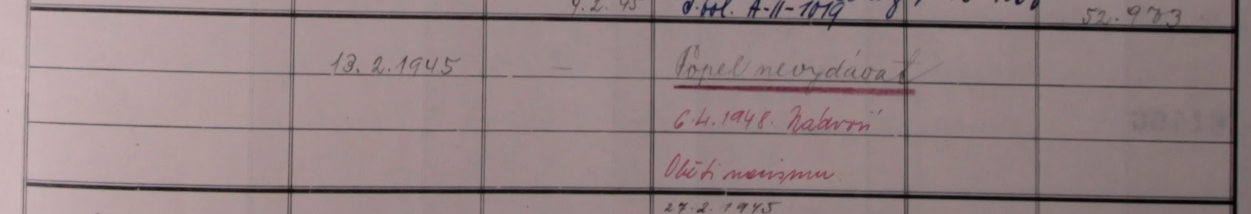 4.2.45 A-II-1019 52.973
13.2.1945 — Popel nevydávat
6.4.1948.
Oběti nacismu
27.2.1945